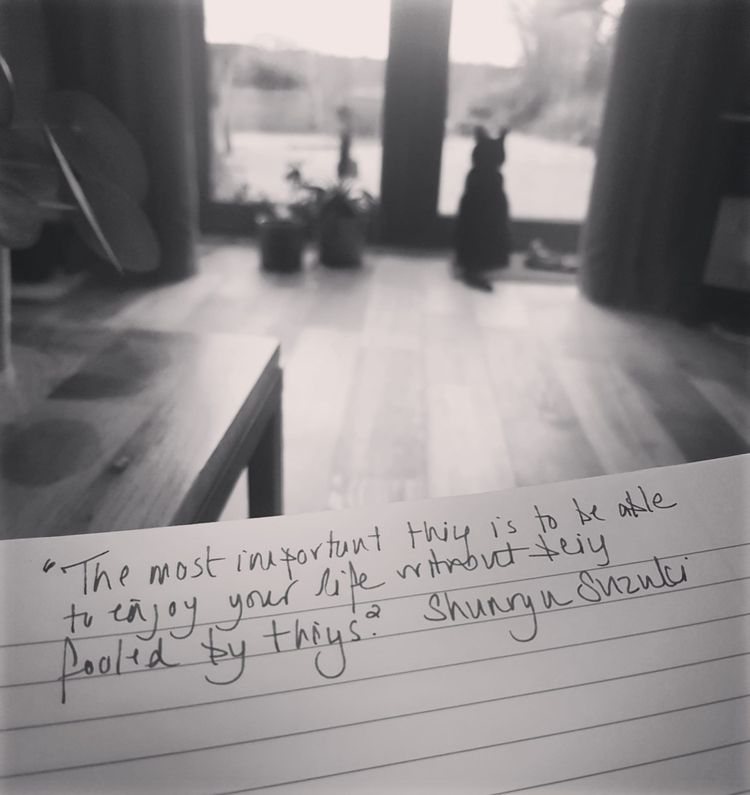 "The most important thing is to be able
to enjoy your life without being
fooled by things." Shunryu Suzuki